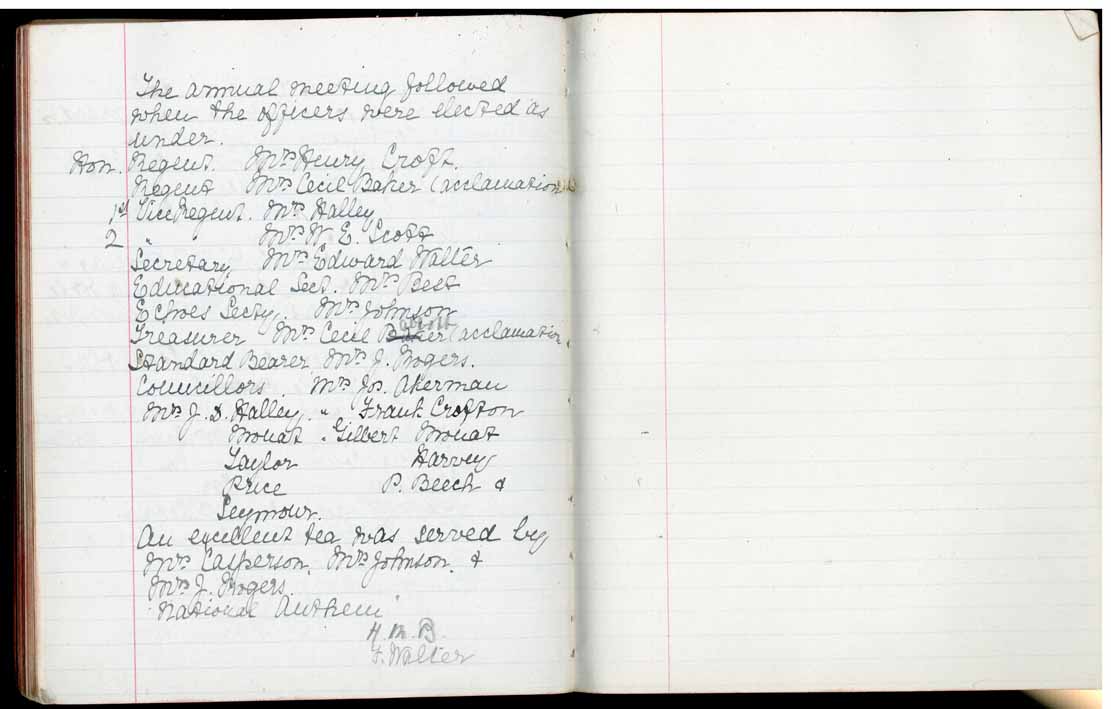 The annual meeting followed
when the officers were elected as
under.
Hon. Regent. Mrs Henry Croft.
Regent Mrs Cecil Baker (acclamation)
1st Vice Regent. Mrs Halley
2 " " Mrs W. E. Scott
Secretary Mrs Edward Walter
Educational Sect. Mrs Best
Echoes Secty. Mrs Johnson
Treasurer Mrs Cecil (acclamation
Standard Bearer Mrs J. Rogers.
Councillors. Mrs Jos. Akerman
Mrs J. D. Halley, " Frank Crofton
Mouat " Gilbert Mouat
Taylor Harvey
Price P. Beech &
Seymour.
An excellent tea was served by
Mrs Casperson, Mrs Johnson, &
Mrs J. Rogers.
"National Anthem"
H. M. B.
F. Walter